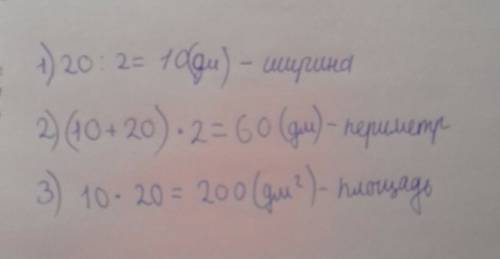 1) 20 : 2 = 10(дм) - ширина
2) (10 + 20) · 2 = 60 (дм) - периметр
3) 10 · 20 = 200 (дм²) - площадь